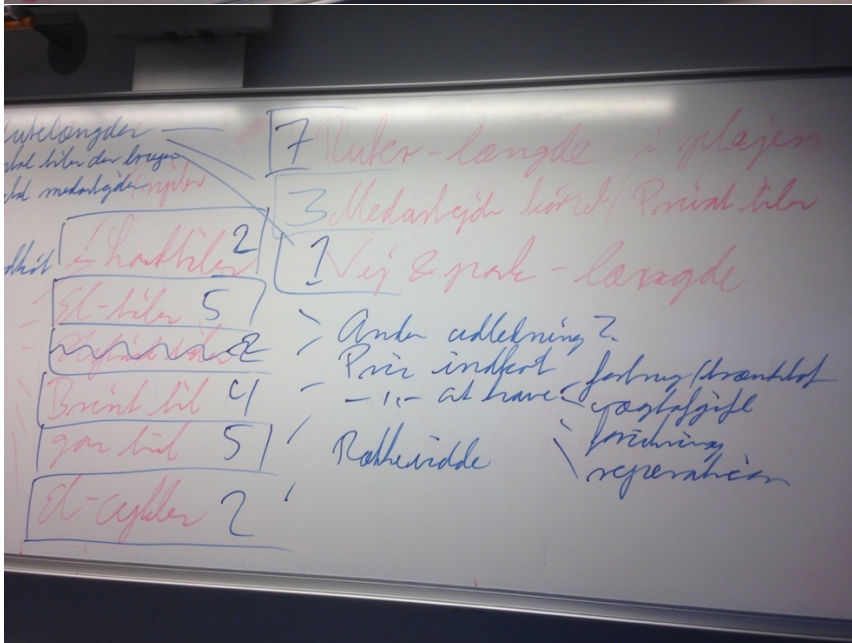 Rutelængder
antal biler der bruger
antal medarbejder
7 Ruter-længde i plejen
3 Medarbejder kørsel/Privat biler
1 Vej & park - længde
2
El-biler 5
2
Brint bil 4
gas bil 5
El-cykler 2
Anden udledning?
Pris indkøb
-"- at have
forbrug/brændstof
vægtafgift
forsikring
reperation
Rækkevidde